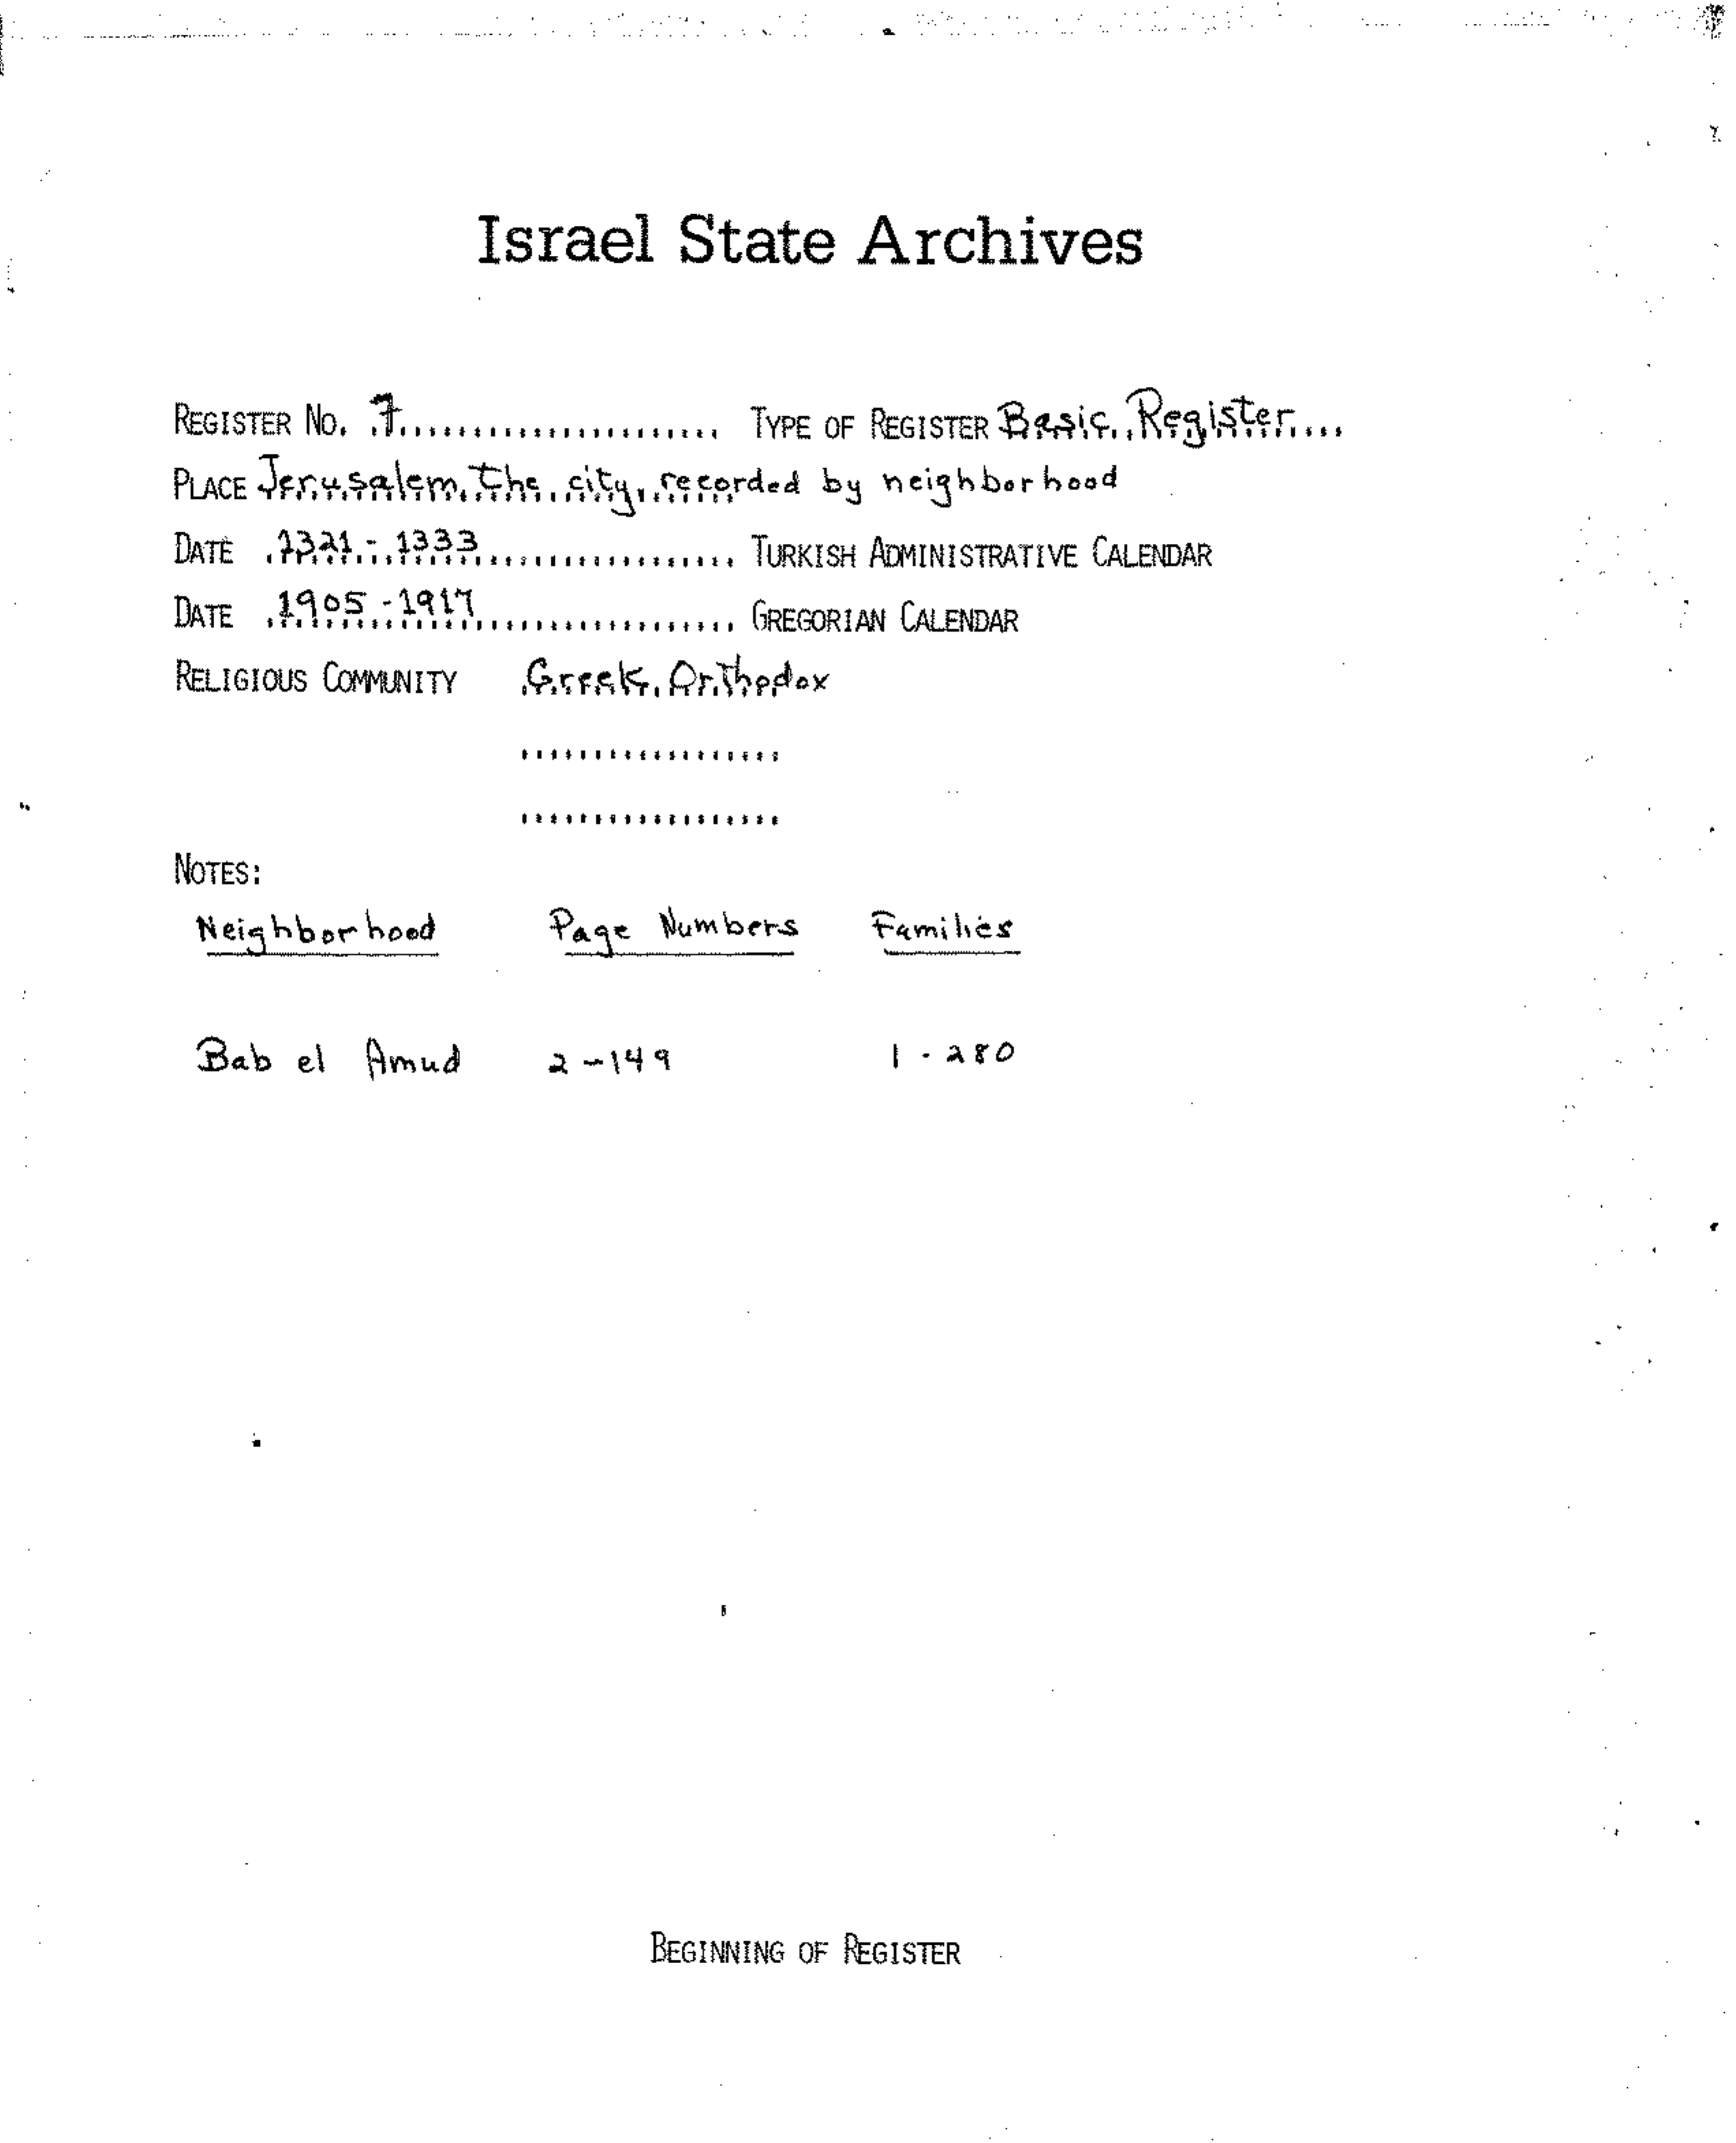 Israel State Archives
REGISTER NO. 7 TYPE OF REGISTER Basic Register
PLACE Jerusalem, the city, recorded by neighborhood
DATE 1321 - 1333 TURKISH ADMINISTRATIVE CALENDAR
DATE 1905 - 1917 GREGORIAN CALENDAR
RELIGIOUS COMMUNITY Greek Orthodox
NOTES:
Neighborhood Page Numbers Families
Bab el Amud 2-149 1-280
BEGINNING OF REGISTER